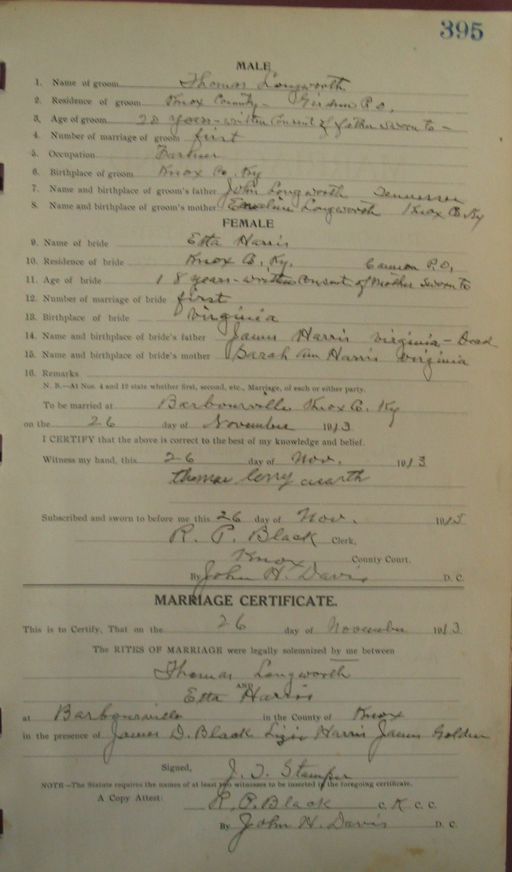 395
MALE
1. Name of groom Thomas Longworth
2. Residence of groom Knox County - Girdner P.O.
3. Age of groom 20 years - written Consent of father sworn to -
4. Number of marriage of groom first
5. Occupation Farmer
6. Birthplace of groom Knox Co. Ky
7. Name and birthplace of groom's father John Longworth Tennessee
8. Name and birthplace of groom's mother Emeline Longworth Knox Co Ky
FEMALE
9. Name of bride Etta Harris
10. Residence of bride Knox Co. Ky. Cannon P.O.
11. Age of bride 18 years - written Consent of Mother sworn to
12. Number of marriage of bride first
13. Birthplace of bride Virginia
14. Name and birthplace of bride's father James Harris Virginia - Dead
15. Name and birthplace of bride's mother Sarah Ann Harris Virginia
16. Remarks
N. B.—At Nos. 4 and 12 state whether first, second, etc., Marriage, of each or either party.
To be married at Barbourville Knox Co. Ky
on the 26 day of November 1913
I CERTIFY that the above is correct to the best of my knowledge and belief.
Witness my hand, this 26 day of Nov. 1913
Thomas
Subscribed and sworn to before me this 26 day of Nov. 1913
R. P. Black Clerk,
Knox County Court.
By John H. Davis D. C.
MARRIAGE CERTIFICATE.
This is to Certify, That on the 26 day of November 1913
The RITES OF MARRIAGE were legally solemnized by me between
Thomas Longworth
AND
Etta Harris
at Barbourville in the County of Knox
in the presence of James D. Black Lizzie Harris James Golden
Signed, J. T. Stamper
NOTE—The Statute requires the names of at least two witnesses to be inserted in the foregoing certificate.
A Copy Attest: R. P. Black C. K. C. C.
By John H. Davis D. C.